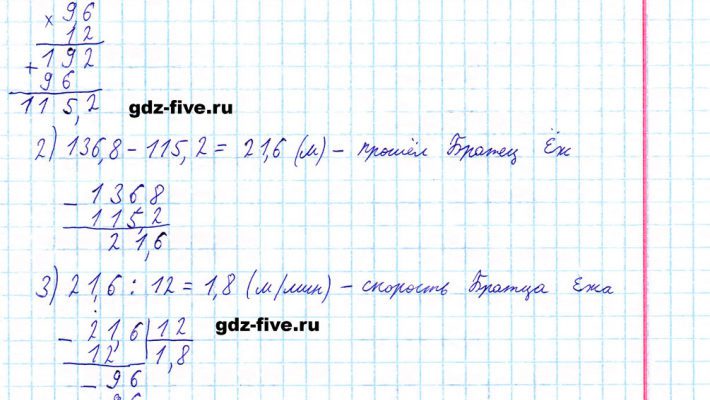 × 9,6
12
+ 192
96
115,2
gdz-five.ru
2) 136,8 - 115,2 = 21,6 (м) - прошёл Братец Ёж
- 136 8
115,2
21,6
3) 21,6 : 12 = 1,8 (м/мин) - скорость Братца Ежа
gdz-five.ru
- 21,6 | 12
12 | 1,8
- 96
96